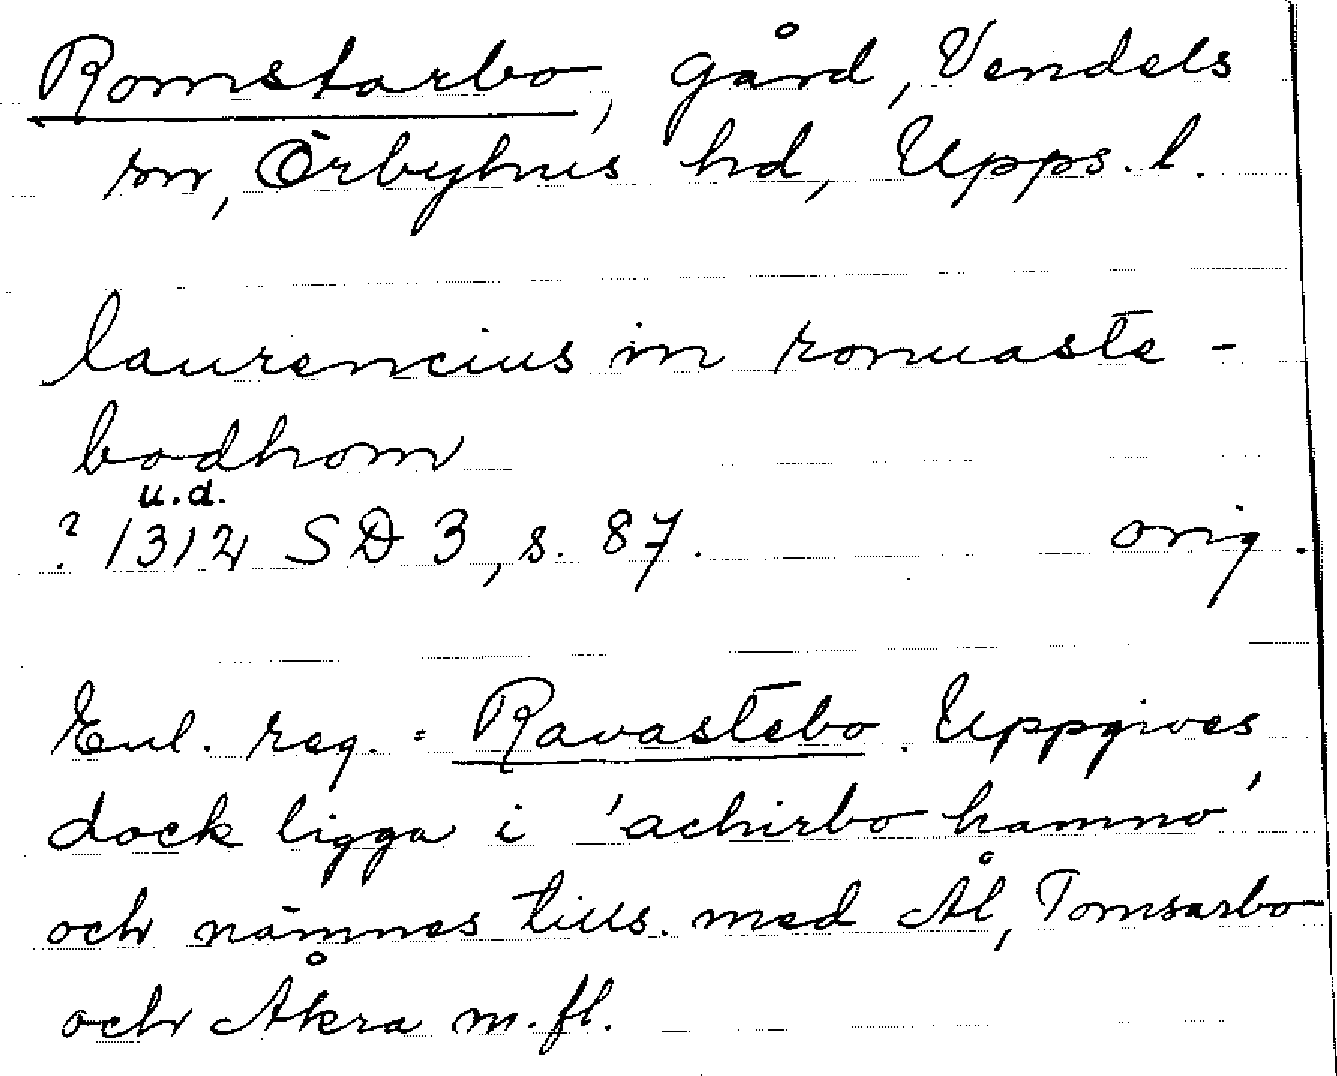 Romstarbo, gård, Vendels
sn, Örbyhus hd, Upps. l.
laurencius in ronuaste-
bodhom
u.d.
? 1312 SD 3, s. 87. orig.
Enl. reg. = Ravastebo. Uppgives
dock ligga i 'achirbo hamno'
och nämnes tills. med Ål, Tomsarbo
och Åkra m.fl.